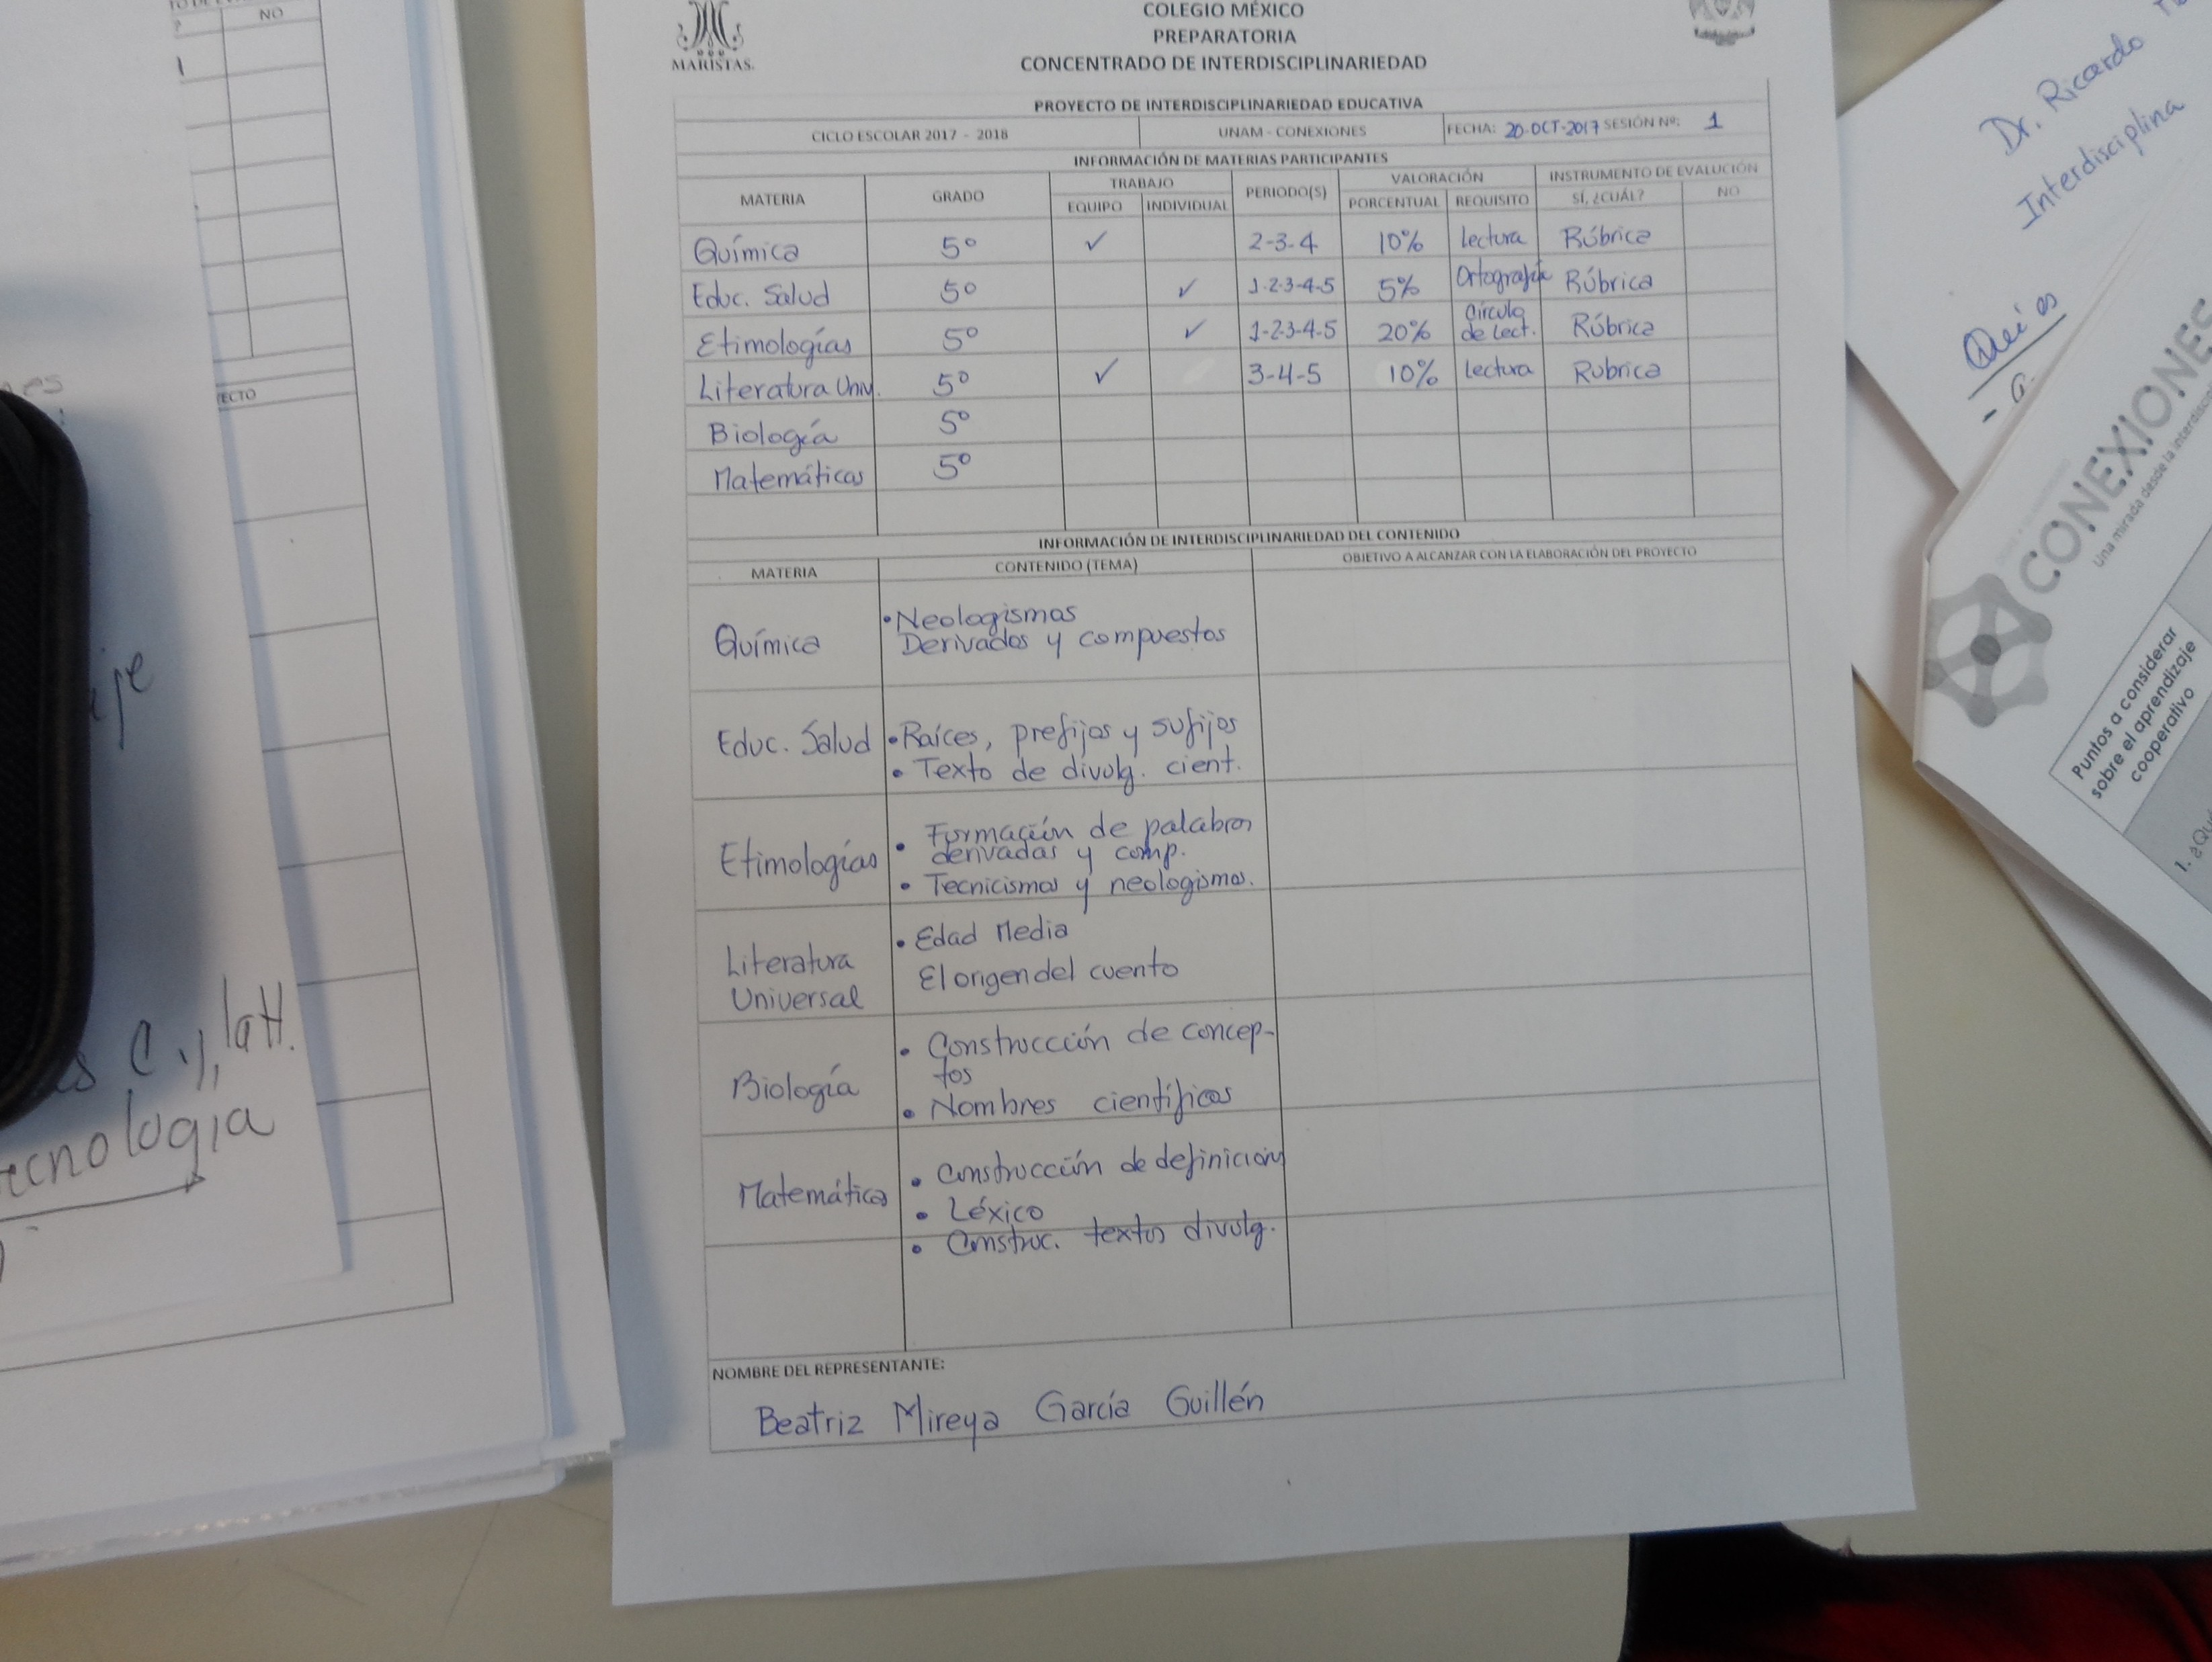 COLEGIO MÉXICO
PREPARATORIA
CONCENTRADO DE INTERDISCIPLINARIEDAD
MARISTAS.
PROYECTO DE INTERDISCIPLINARIEDAD EDUCATIVA
CICLO ESCOLAR 2017 - 2018 UNAM - CONEXIONES FECHA: 20-OCT-2017 SESIÓN Nº: 1
INFORMACIÓN DE MATERIAS PARTICIPANTES
MATERIA GRADO TRABAJO PERIODO(S) VALORACIÓN INSTRUMENTO DE EVALUCIÓN
EQUIPO INDIVIDUAL PORCENTUAL REQUISITO SÍ, ¿CUÁL? NO
Química 5º ✓ 2-3-4 10% Lectura Rúbrica
Educ. Salud 5º ✓ 1-2-3-4-5 5% Ortografía Rúbrica
Etimologías 5º ✓ 1-2-3-4-5 20% Círculo de Lect. Rúbrica
Literatura Univ. 5º ✓ 3-4-5 10% Lectura Rubrica
Biología 5º
Matemáticas 5º
INFORMACIÓN DE INTERDISCIPLINARIEDAD DEL CONTENIDO
MATERIA CONTENIDO (TEMA) OBJETIVO A ALCANZAR CON LA ELABORACIÓN DEL PROYECTO
Química
• Neologismos
Derivados y compuestos
Educ. Salud
• Raíces, prefijos y sufijos
• Texto de divulg. cient.
Etimologías
• Formación de palabras
derivadas y comp.
• Tecnicismos y neologismos.
Literatura
Universal
• Edad Media
El origen del cuento
Biología
• Construcción de concep-
tos
• Nombres científicos
Matemática
• Construcción de definición
• Léxico
• Construc. textos divulg.
NOMBRE DEL REPRESENTANTE:
Beatriz Mireya García Guillén
NO
ECTO
Dr. Ricardo
Interdisciplina
CONEXIONES
Una mirada desde la
Puntos a considerar
sobre el aprendizaje
cooperativo
1.